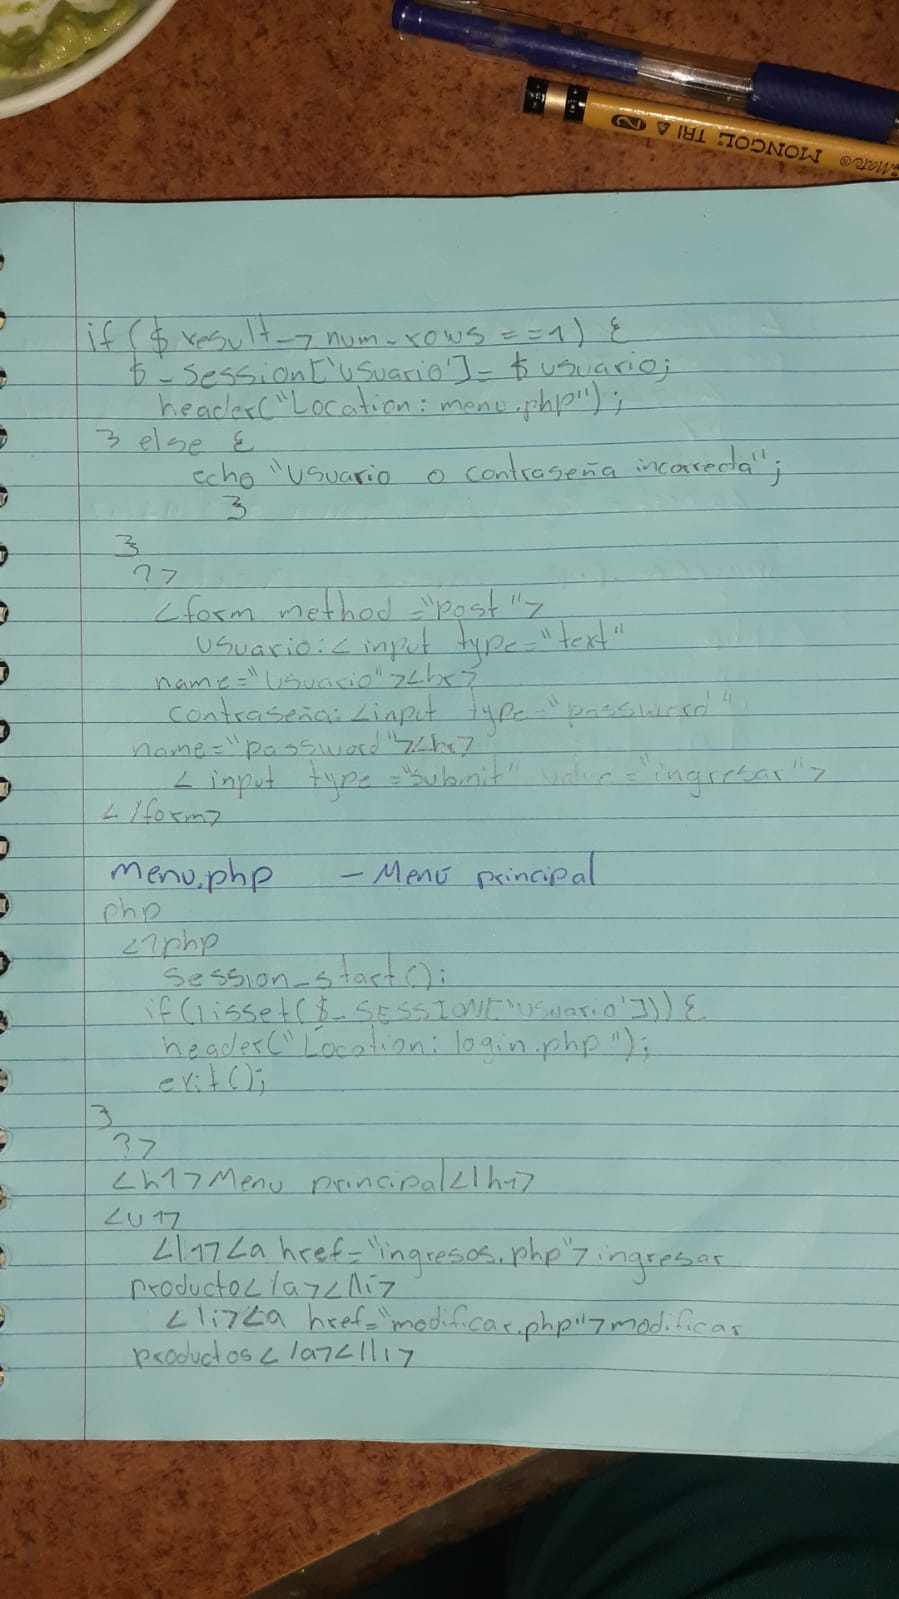 Mate® MONGOL: TRI △ 2
if ($ result -> num_rows == =1) {
$ _ Session['usuario'] = $ usuario;
header("Location: menu.php");
} else {
echo "Usuario o contraseña incorrecta";
}
}
?>
<form method ="post">
Usuario:< input type="text"
name="usuario"><br>
contraseña: <input type="password"
name="password"><br>
< input type ="submit" value ="ingresar">
< /form>
menu.php - Menú principal
php
<?php
session_start();
if(!isset($_SESSION['usuario'])) {
header("Location: login.php");
exit();
}
?>
<h1>Menu principal</h1>
<ul>
<li><a href="ingresos.php">ingresar
producto</a></li>
<li><a href="modificar.php">modificar
productos</a></li>